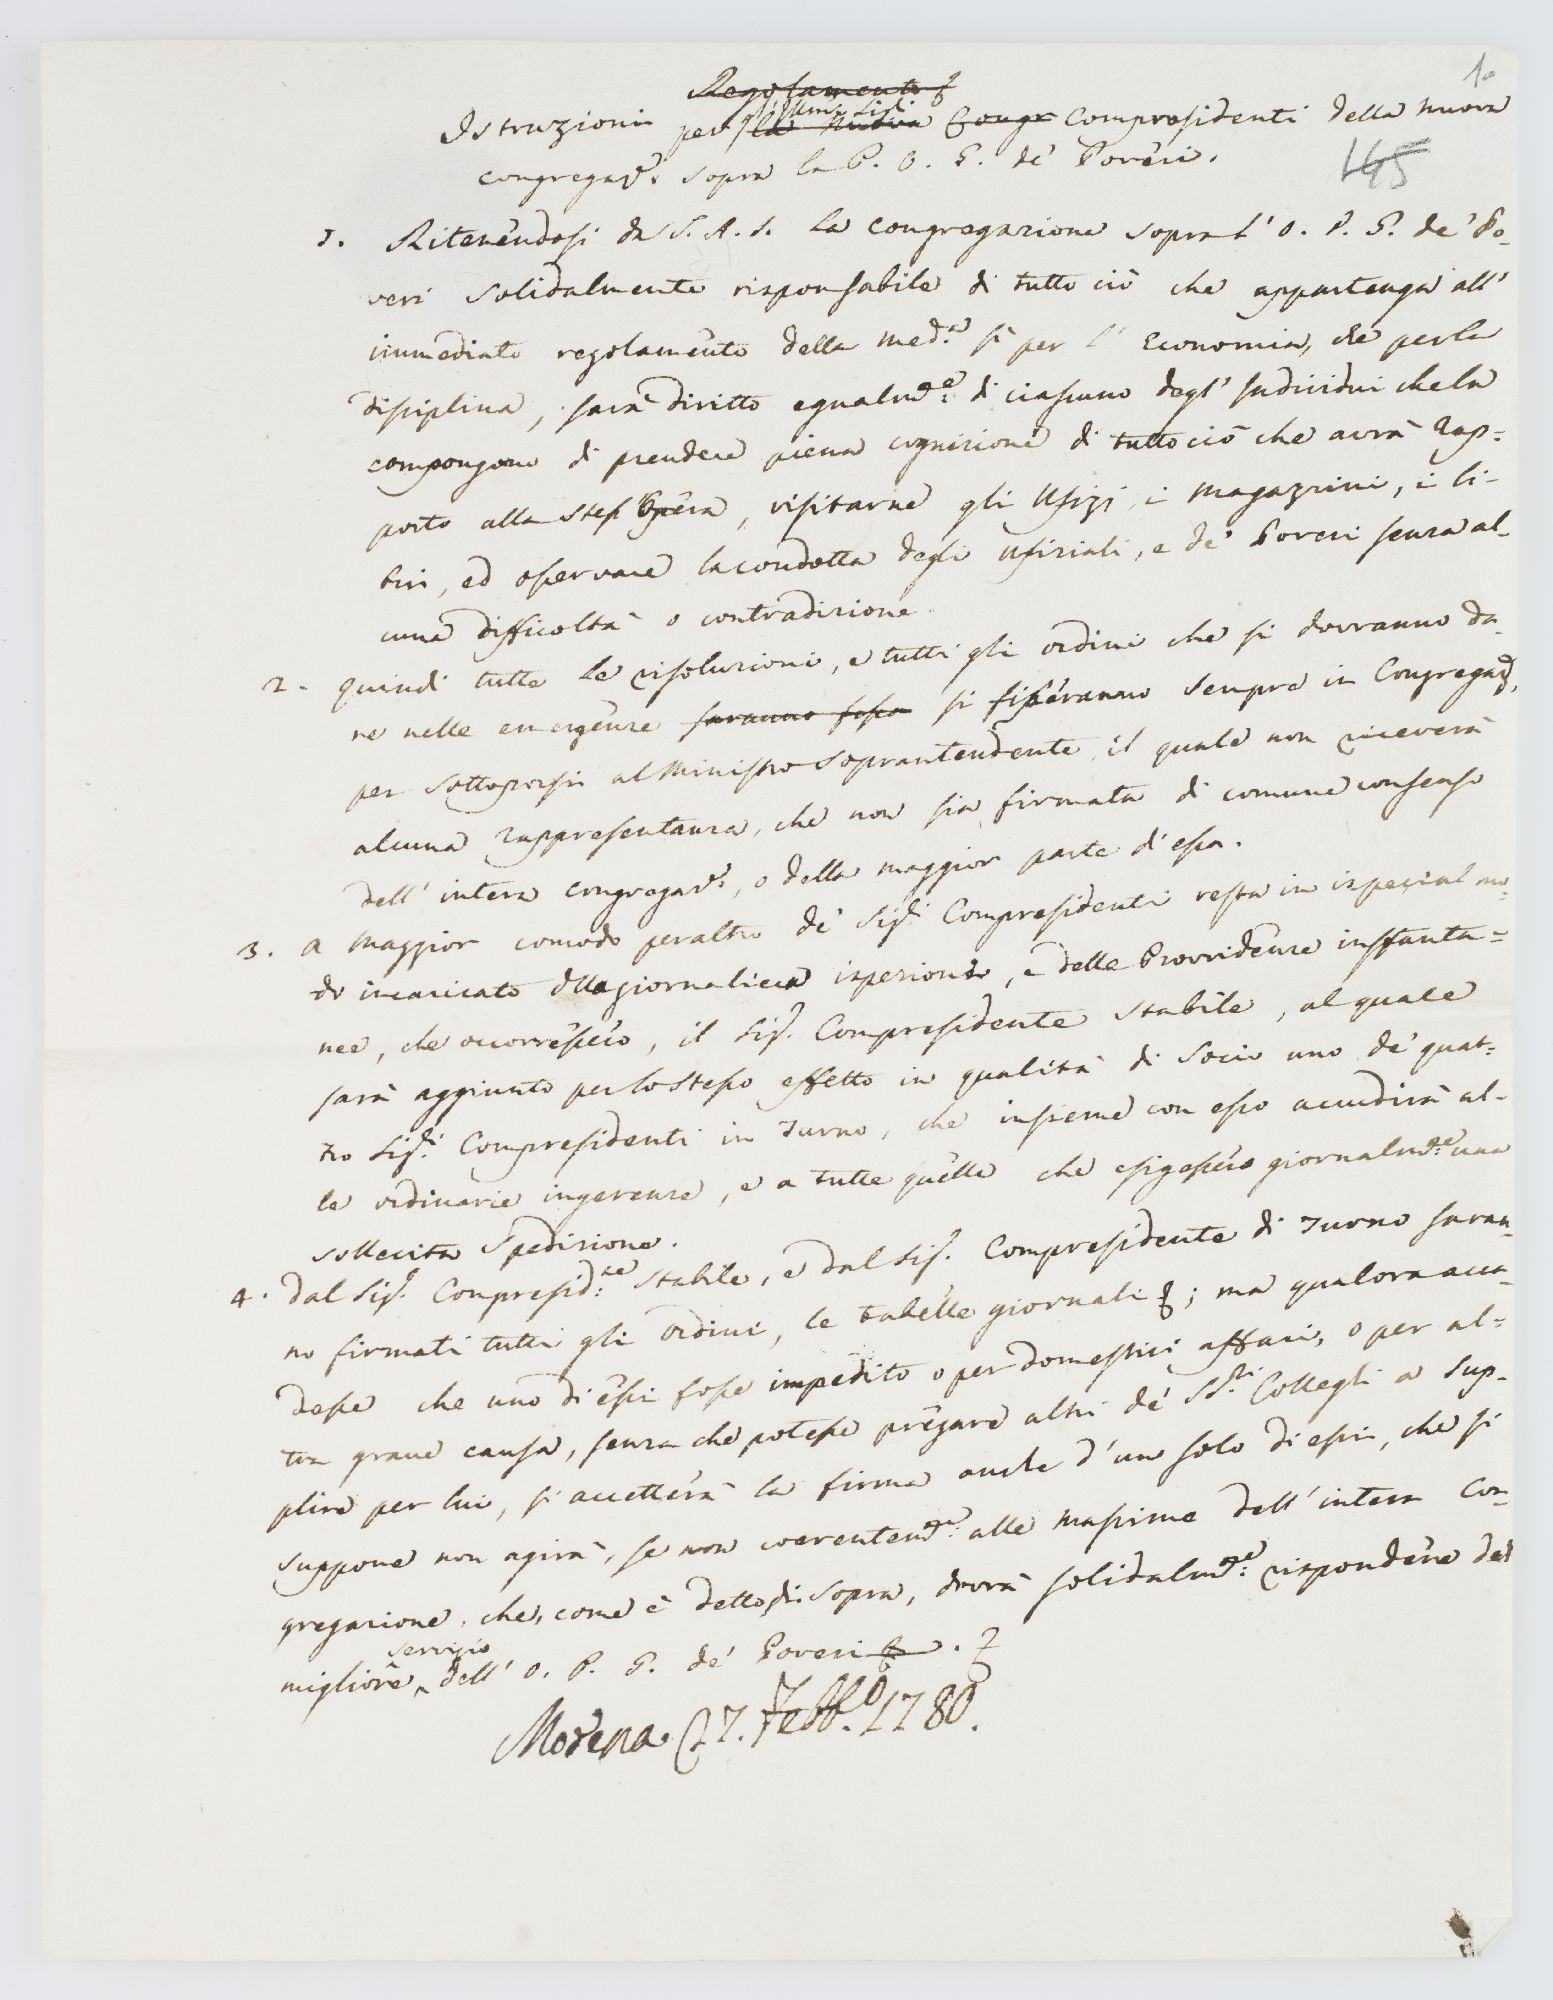 1.
Regolamento
Istruzioni per gl'Illmi Sigri la nuova Congr Compresidenti della nuova
145
congregaz.e sopra la P. O. G. de' Poveri.
1. Ritenendosi da S. A. S. la congregazione sopra l' O. P. G. de' Po-
veri solidalmente risponsabile di tutto ciò che appartenga all'
immediato regolamento della med.a sì per l' Economia, che per la
disciplina, sarà diritto egualm.te di ciascuno degl' Individui che la
compongono di prendere piena cognizione di tutto ciò che avrà rap-
porto alla stess' Opera, visitarne gli Ufizj, i Magazzini, i li-
bri, ed osservare la condotta degli Ufiziali, e de' Poveri senza al-
cuna difficoltà o contradizione.
2. Quindi tutte le risoluzioni, e tutti gli ordini che si dovranno da-
re nelle emergenze saranno fissa si fisseranno sempre in Congregaz.e,
per sottoporsi al Ministro Soprantendente, il quale non riceverà
alcuna rappresentanza, che non sia firmata di comune consenso
dell' intera congregaz.e, o della maggior parte d' essa.
3. A maggior comodo peraltro de' Sig.ri Compresidenti resta in ispecial mo-
do incaricato della giornaliera ispezione, e delle Provvidenze instanta-
nee, che occorressero, il Sig.r Compresidente stabile, al quale
sarà aggiunto per lo stesso effetto in qualità di Socio uno de' quat-
tro Sig.ri Compresidenti in Turno, che insieme con esso accudirà al-
le ordinarie ingerenze, e a tutte quelle che esigessero giornalm.te una
sollecita spedizione.
4. Dal Sig.r Compresid.te stabile, e dal Sig.r Compresidente di Turno saran-
no firmati tutti gli ordini, le tabelle giornali &; ma qualora acca-
desse che uno di essi fosse impedito o per domestici affari, o per al-
tra grave causa, senza che potesse pregare altri de' Sd.ti Collegli a sup-
plire per lui, si accetterà la firma anche d' un solo di essi, che si
suppone non agirà, se non coerentem.te alle massime dell' intera Con-
gregazione, che, come è detto di sopra, dovrà solidalm.te rispondere del
migliore servizio dell' O. P. G. de' Poveri & . &
Modena. 27. Febb.o 1780.